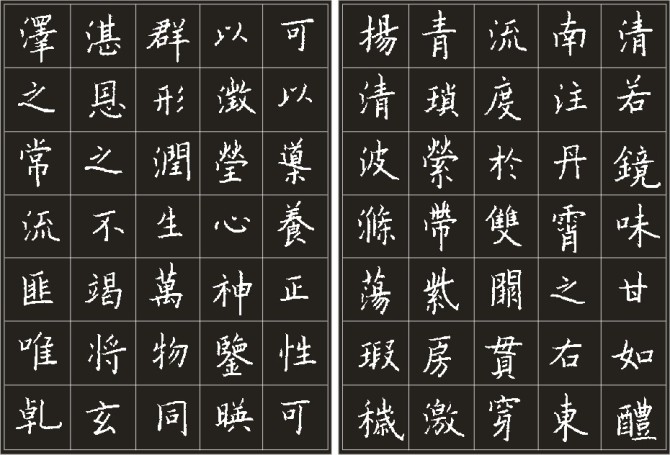 清若鏡味甘如醴
南注丹霄之右東
流度於雙闕貫穿
青瑣縈帶紫房激
揚清波滌蕩瑕穢
可以導養正性可
以澂瑩心神鑒暎
群形潤生萬物同
湛恩之不竭將玄
澤之常流匪唯乹